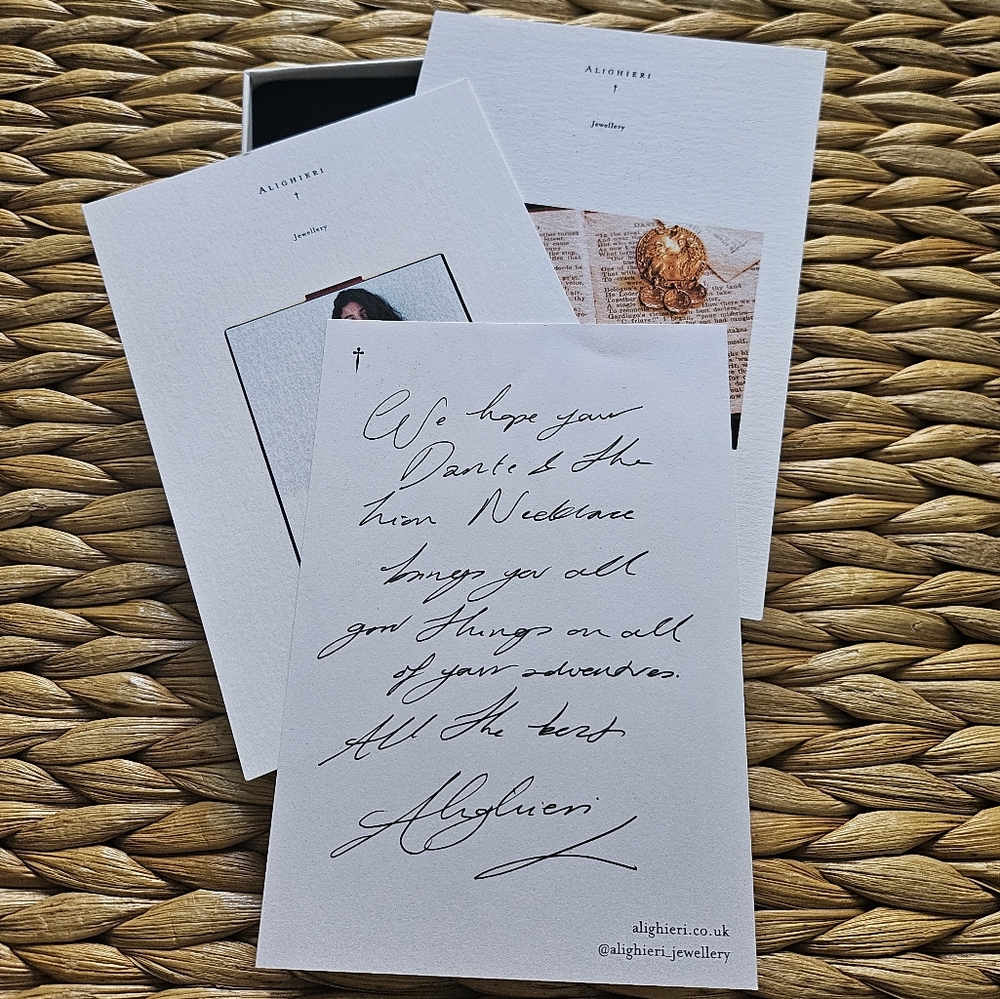 ALIGHIERI
†
Jewellery
ALIGHIERI
†
Jewellery
DANTE
†
We hope your
Dante & the
Lion Necklace
brings you all
good things on all
of your adventures.
All the best
Alighieri
alighieri.co.uk
@alighieri_jewellery